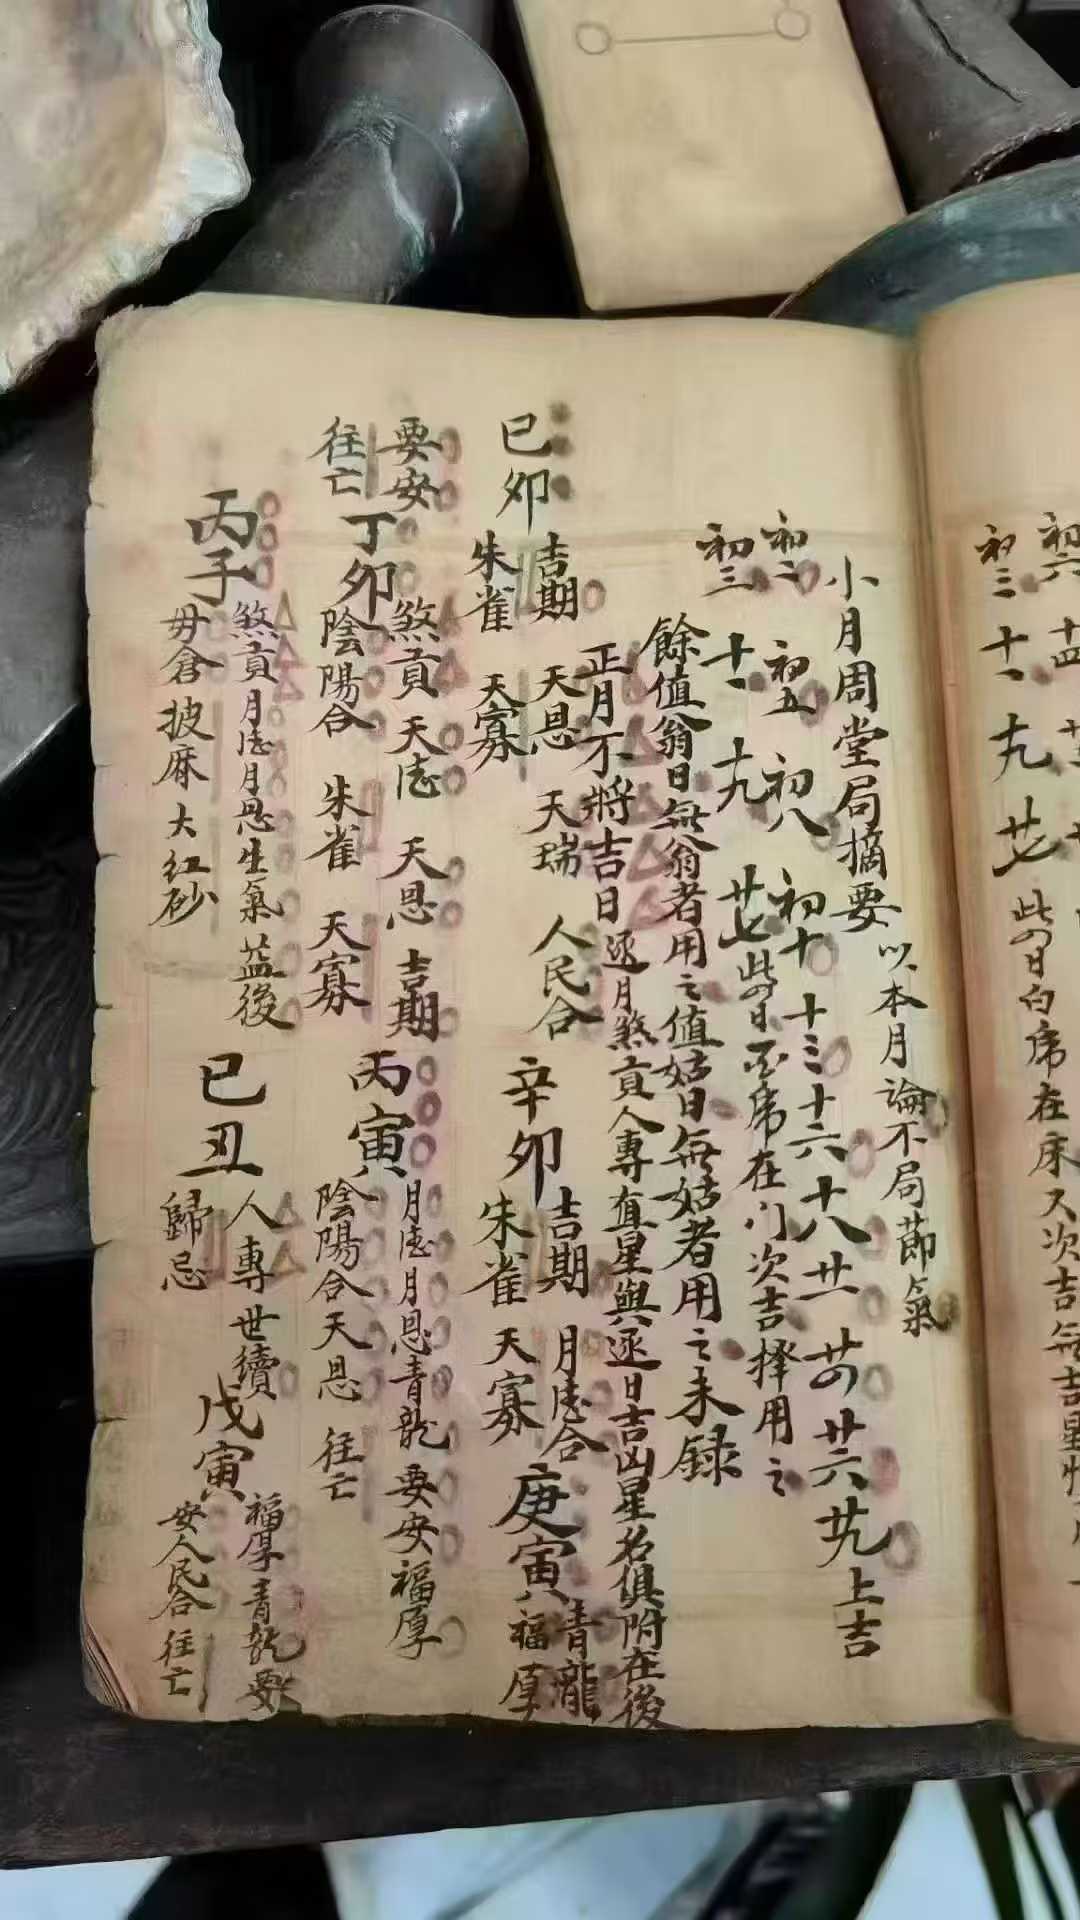 初六 十四 廿二
初三 十一 十九 廿七 此四日白虎在床又次吉無吉星
小月周堂局摘要 以本月論不局節氣
初二 初五 初八 初十 十三 十六 十八 廿一 廿四 廿六 廿九 上吉
初三 十一 十九 廿七 此四日白虎在门次吉擇用之
餘值翁日無翁者用之值姑日無姑者用之未録
正月不將吉日 逐月煞貢人專直星與逐日吉凶星名俱附在後
己卯 吉期 天恩 天瑞 人民合
朱雀 天寡
辛卯 吉期 月徳合
朱雀 天寡
庚寅 青龍
福厚
要安
往亡
丁卯 煞貢 天徳 天恩 吉期
陰陽合 朱雀 天寡
丙寅 月徳 月恩 青龍 要安 福厚
陰陽合 天恩 往亡
丙子 煞貢 月徳 月恩 生氣 益後
毋倉 披麻 大红砂
己丑 人專 世續
歸忌
戊寅 福厚 青龍 要
安 人民合 往亡